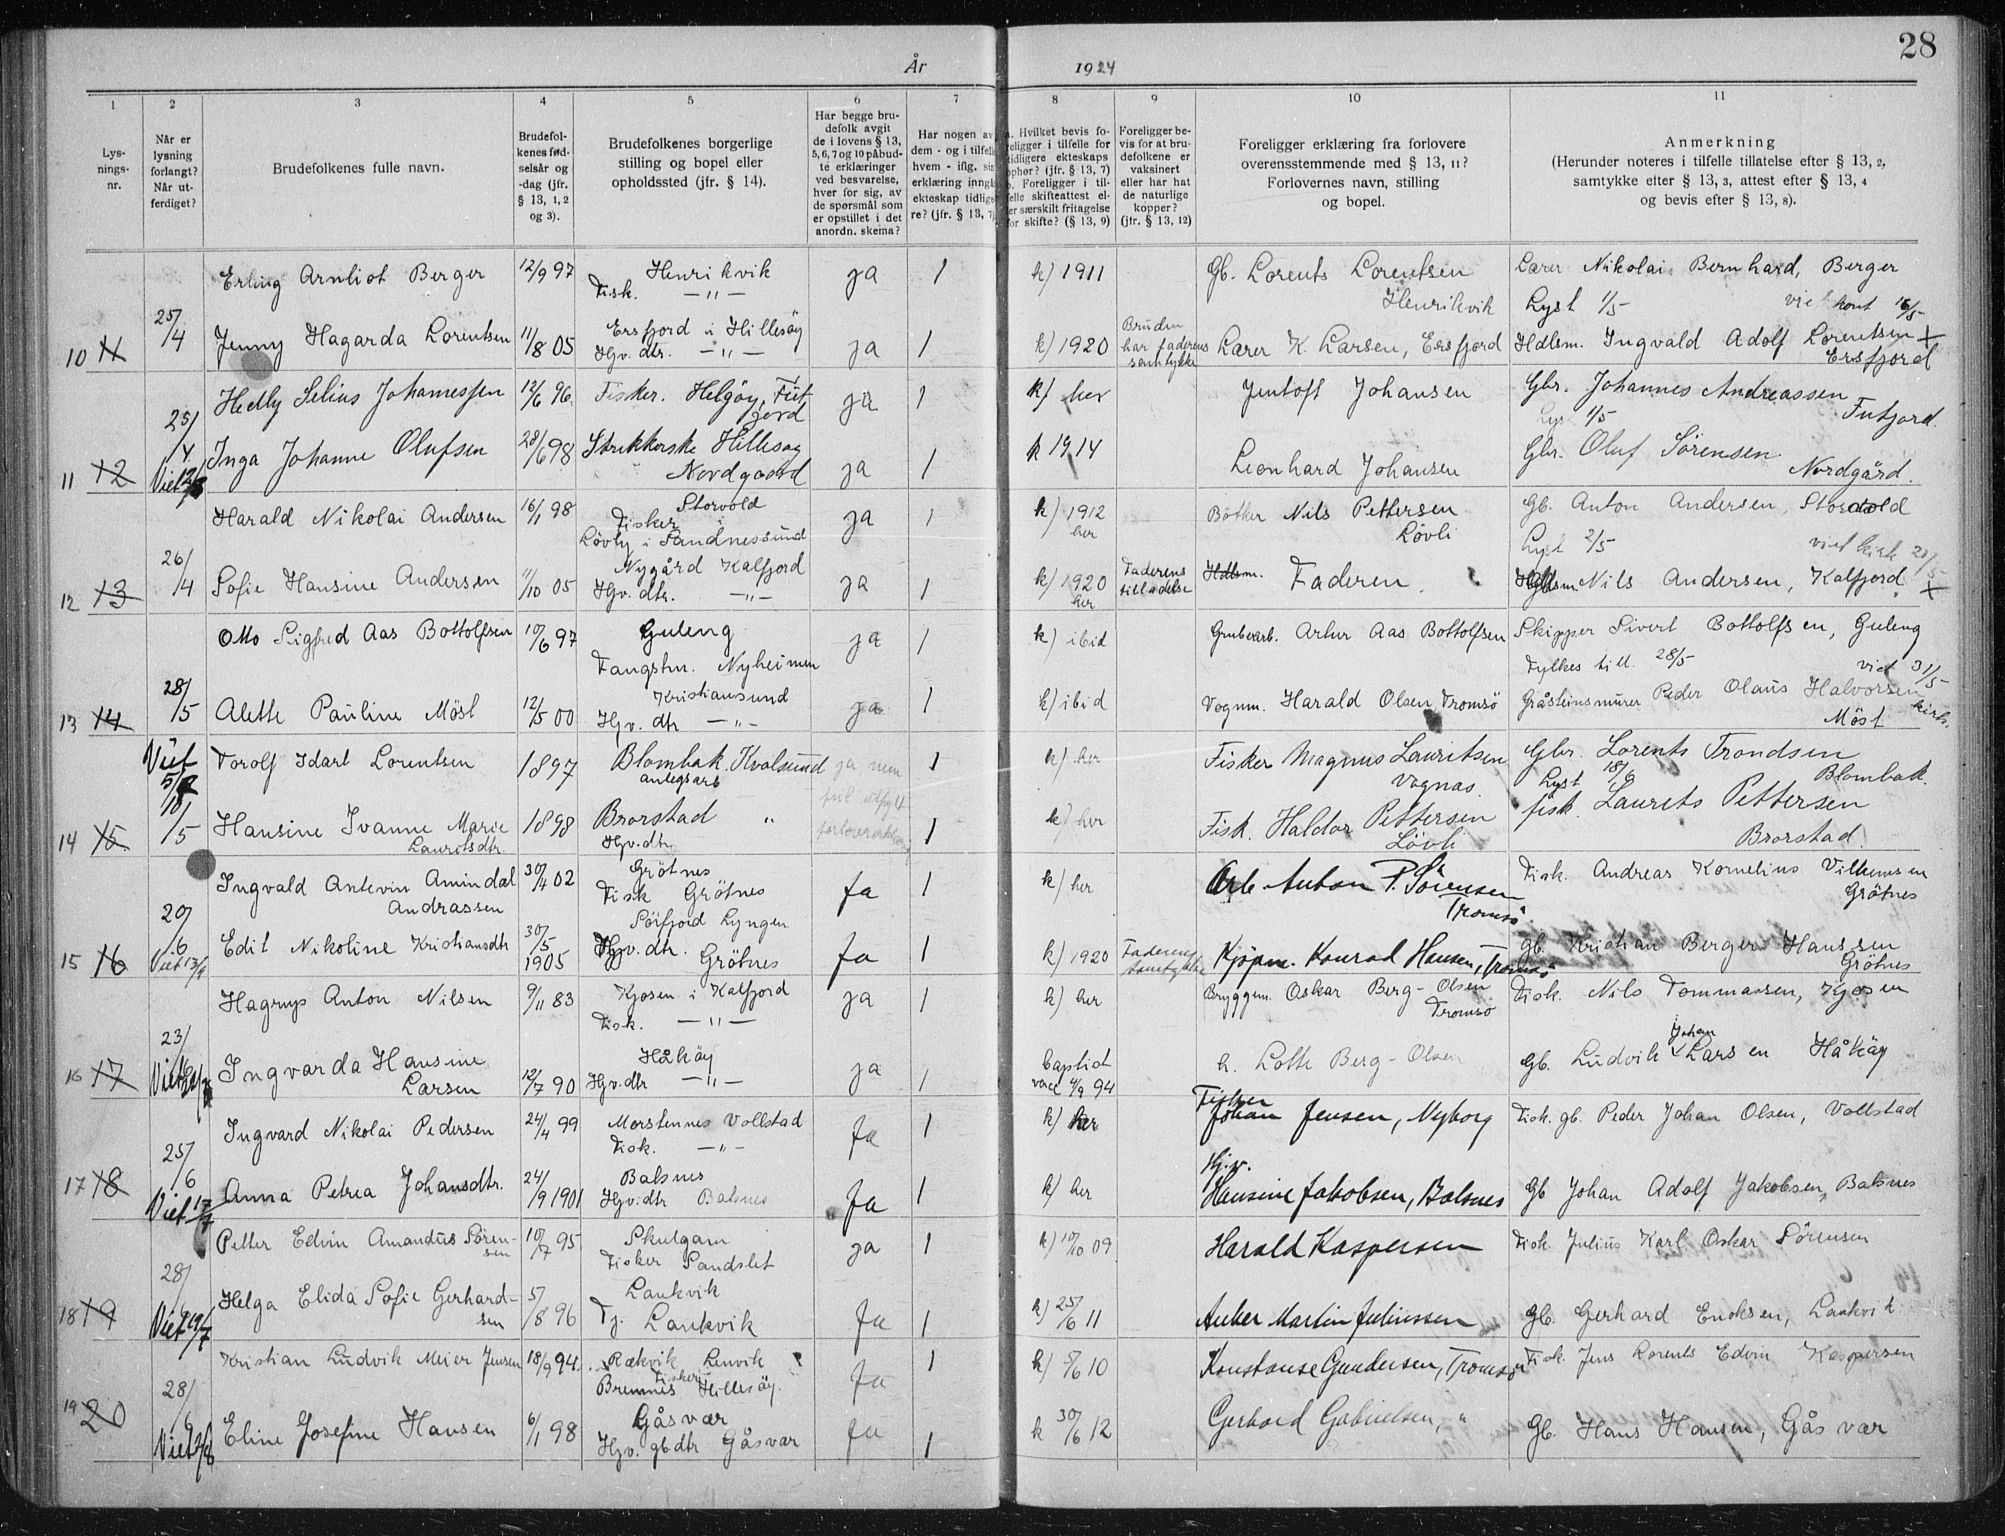 28
År 1924
1 2 3 4 5 6 7 8 9 10 11
Lysningsnr.
Når er lysning forlangt? Når utferdiget?
Brudefolkenes fulle navn.
Brudefolkenes fødselsår og -dag (jfr. § 13, 1, 2 og 3).
Brudefolkenes borgerlige stilling og bopel eller opholdssted (jfr. § 14).
Har begge brudefolk avgit de i lovens § 13, 5, 6, 7 og 10 påbudte erklæringer ved besvarelse, hver for sig, av de spørsmål som er opstillet i det anordn. skema?
Har nogen av dem - og i tilfelle hvem - iflg. sin erklæring inngå ekteskap tidligere? (jfr. § 13, 7)
a. Hvilket bevis foreligger i tilfelle for tidligere ekteskaps ophør? (jfr. § 13, 7) b. Foreligger i tilfelle skifteattest eller særskilt fritagelse for skifte? (§ 13, 9)
Foreligger bevis for at brudefolkene er vaksinert eller har hat de naturlige kopper? (jfr. § 13, 12)
Foreligger erklæring fra forlovere overensstemmende med § 13, 11? Forlovernes navn, stilling og bopel.
Anmerkning (Herunder noteres i tilfelle tillatelse efter § 13, 2, samtykke efter § 13, 3, attest efter § 13, 4 og bevis efter § 13, 8).
Erling Arnliot Berger 12/9 97 Henrikvik Fisk. —"— ja 1 k) 1911 Gb. Lorents Lorentsen Henrikvik Lærer Nikolai Bernhard, Berger
Lyst 1/5 viet kont 16/5
10 11 25/4 Jenny Hagarda Lorentsen 11/8 05 Ersfjord i Hillesøy Hjv. dtr. —"— ja 1 k) 1920 Bruden har faderens samtykke Lærer K. Larsen, Ersfjord Hdlsm. Ingvald Adolf Lorentsen Ersfjord
Hedly Selius Johannessen 12/6 96 Fisker. Helgøy, Futfjord ja 1 k) her Jentoft Johansen Gbr. Johannes Andreassen Futfjord.
Lyst 1/5
11 12 25/4 Viet Inga Johanne Olufsen 28/6 98 Strikkerske Hillesøy Nordgaard ja 1 k 1914 Leonhard Johansen Gbr. Oluf Sørensen Nordgård.
Harald Nikolai Andersen 16/1 98 Storvold Fisker Løvly i Sandnessund ja 1 k) 1912 her Bøtker Nils Pettersen Løvli Gb. Anton Andersen, Storvold
Lyst 2/5 viet kirk
12 13 26/4 Sofie Hansine Andersen 11/10 05 Nygård Kalfjord Hjv. dtr. —"— ja 1 k) 1920 her Faderens tilladelse Hdlsm. Faderen. Nils Andersen, Kalfjord
Otto Sigfred Aas Bottolfsen 10/6 97 Guleng Fangstm. Nyheimen ja 1 k) ibid Grubearb. Artur Aas Bottolfsen Skipper Sivert Bottolfsen, Guleng
Fylkes till. 28/5 viet 31/5 kirk.
13 14 28/5 Alette Pauline Möst 12/5 00 Kristiansund Hjv. dtr —"— ja 1 k) ibid Vognm. Harald Olsen, Tromsö Gråsteinsmurer Peder Olaus Halvorsen Möst
Viet Torolf Idart Lorentsen 1897 Blombak. Kvalsund anlegsarb 1 k) her Fisker Magnus Lauritsen Vognas. Gbr. Lorents Trondsen Blombak.
Lyst 18/6
14 15 Hansine Ivanne Marie Lauritsdtr. 1898 Brorstad " Hjv. dtr 1 k) her Fisk. Haldor Pettersen Løvli fisk. Laurits Pettersen Brorstad
Ingvald Antevin Amindal Andrassen 30/4 02 Grötnes Fisk Grötnes Ja 1 k) her Arb. Anton P. Sörensen Tromsö Fisk. Andreas Kornelius Vilhemsen Grötnes
15 16 20/6 Viet 13/9 Edit Nikoline Kristiansdtr 30/5 1905 Sörfjord Lyngen Hjv. dtr. Grötnes Ja 1 k) 1920 Faderens samtykke Kjöpm. Konrad Hansen, Tromsö gb. Kristian Berger Hanssen Grötnes
Hagrup Anton Nilsen 9/11 83 Kjosen i Kalfjord Fisk. —"— ja 1 k) her Bryggem. Oskar Berg-Olsen Tromsö Fisk. Nils Tommassen, Kjosen
16 17 23/ Viet Ingvarda Hansine Larsen 12/7 90 Håköy Hjv. dtr —"— ja 1 baptist 4/9 94 h. Lotte Berg-Olsen Gb. Ludvik Johan Larsen Håköy
Ingvard Nikolai Pedersen 24/4 99 Morstennes Vollstad Fisk. —"— Ja 1 k) her Fisker Johan Jensen, Nyborg Fisk. gb. Peder Johan Olsen, Vollstad
17 18 25/6 Viet 17/7 Anna Petrea Johansdtr. 24/9 1901 Balsnes Hjv. dtr Balsnes Ja 1 k) her Hj.v. Hansine Jakobsen, Balsnes Gb Johan Adolf Jakobsen, Balsnes
Petter Edvin Amandus Sörensen 10/7 95 Skulgam Fisker Sandslet ja 1 k) 10/10 09 Harald Kaspersen Fisk. Julius Karl Oskar Sörensen
18 19 28/6 Viet Helga Elida Sofie Gerhardsen 5/8 96 Laukvik Tj. Laukvik Ja 1 k) 25/6 11 Anker Martin Juliussen Gb. Gerhard Enoksen, Laukvik
Kristian Ludvik Meier Jensen 18/9 94. Rækvik Lenvik Fisker Bremnes Hillesøy. Ja 1 k) 5/6 10 Konstanse Gundersen, Tromsö Fisk. Jens Lorents Edvin Kaspersen
19 20 28/6 Viet Eline Josefine Hansen 6/1 98 Gåsvær Hjv. gb dtr Gåsvær Ja 1 k 30/6 12 Gerhard Gabrielsen, " Gb. Hans Hansen, Gåsvær